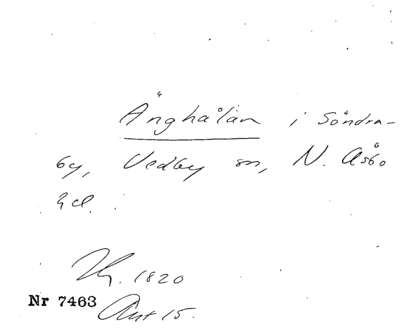 Änghålan i Söndra-
by, Vedby sn, N. Åsbo
hd.
1820
Nr 7463
15.